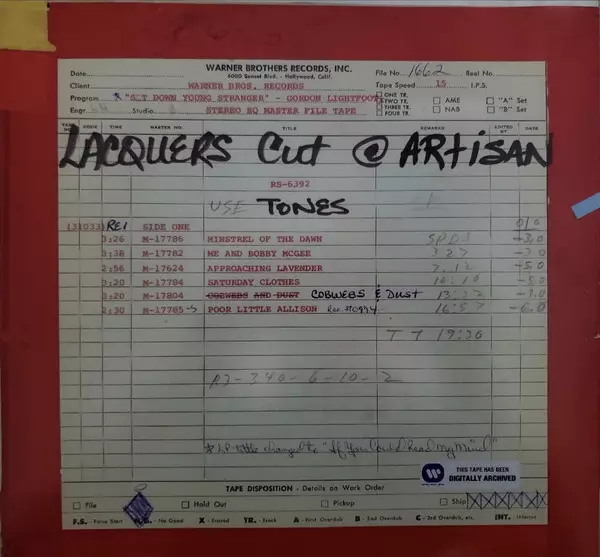 WARNER BROTHERS RECORDS, INC.
6000 Sunset Blvd. - Hollywood, Calif.
Date File No. 1662 Reel No.
Client WARNER BROS. RECORDS Tape Speed 15 I.P.S.
Program "SIT DOWN YOUNG STRANGER" - GORDON LIGHTFOOT
ONE TR.
TWO TR. AME "A" Set
THREE TR. NAB "B" Set
FOUR TR.
Engr. Studio STEREO EQ MASTER FILE TAPE
CODE TIME MASTER NO. TITLE REMARKS EDITED BY DATE
LACQUERS Cut @ ARTISAN
RS-6392
USE TONES
(31033) RE1 SIDE ONE
3:26 M-17786 MINSTREL OF THE DAWN SPDS -3.0
3:38 M-17782 ME AND BOBBY MCGEE 327
2:56 M-17624 APPROACHING LAVENDER 7.12 -5.0
3:20 M-17784 SATURDAY CLOTHES 10:10
3:20 M-17804 COBWEBS AND DUST COBWEBS & DUST
2:30 M-17785-S POOR LITTLE ALLISON 16:57 -6.0
TT 19:30
A3-340-6-10-2
* LP title changed to "If You Could Read My Mind"
THIS TAPE HAS BEEN
DIGITALLY ARCHIVED
TAPE DISPOSITION - Details on Work Order
File Hold Out Pickup Ship
F.S. - False Start N.G. - No Good X - Erased TR. - Track A - First Overdub B - 2nd Overdub C - 3rd Overdub, etc. INT. - Internal